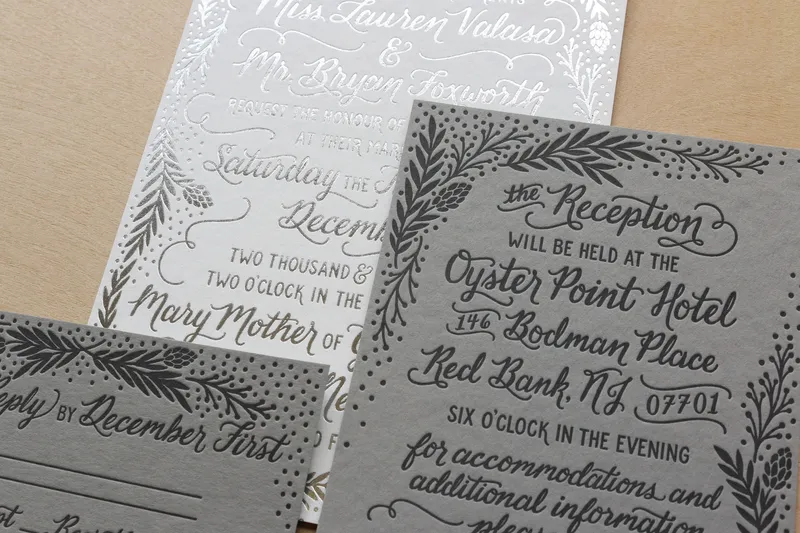 Miss Lauren Valasa
&
Mr. Bryan Foxworth
REQUEST THE HONOUR OF
AT THEIR MAR
Saturday THE
Decem
TWO THOUSAND &
TWO O'CLOCK IN THE
Mary Mother OF
the Reception
WILL BE HELD AT THE
Oyster Point Hotel
146 Bodman Place
Red Bank, NJ 07701
SIX O'CLOCK IN THE EVENING
for accommodations and
additional information
please
Reply BY December First